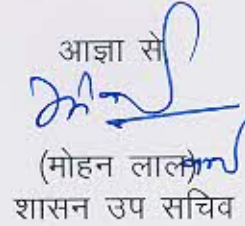 आज्ञा से
(मोहन लाल)
शासन उप सचिव